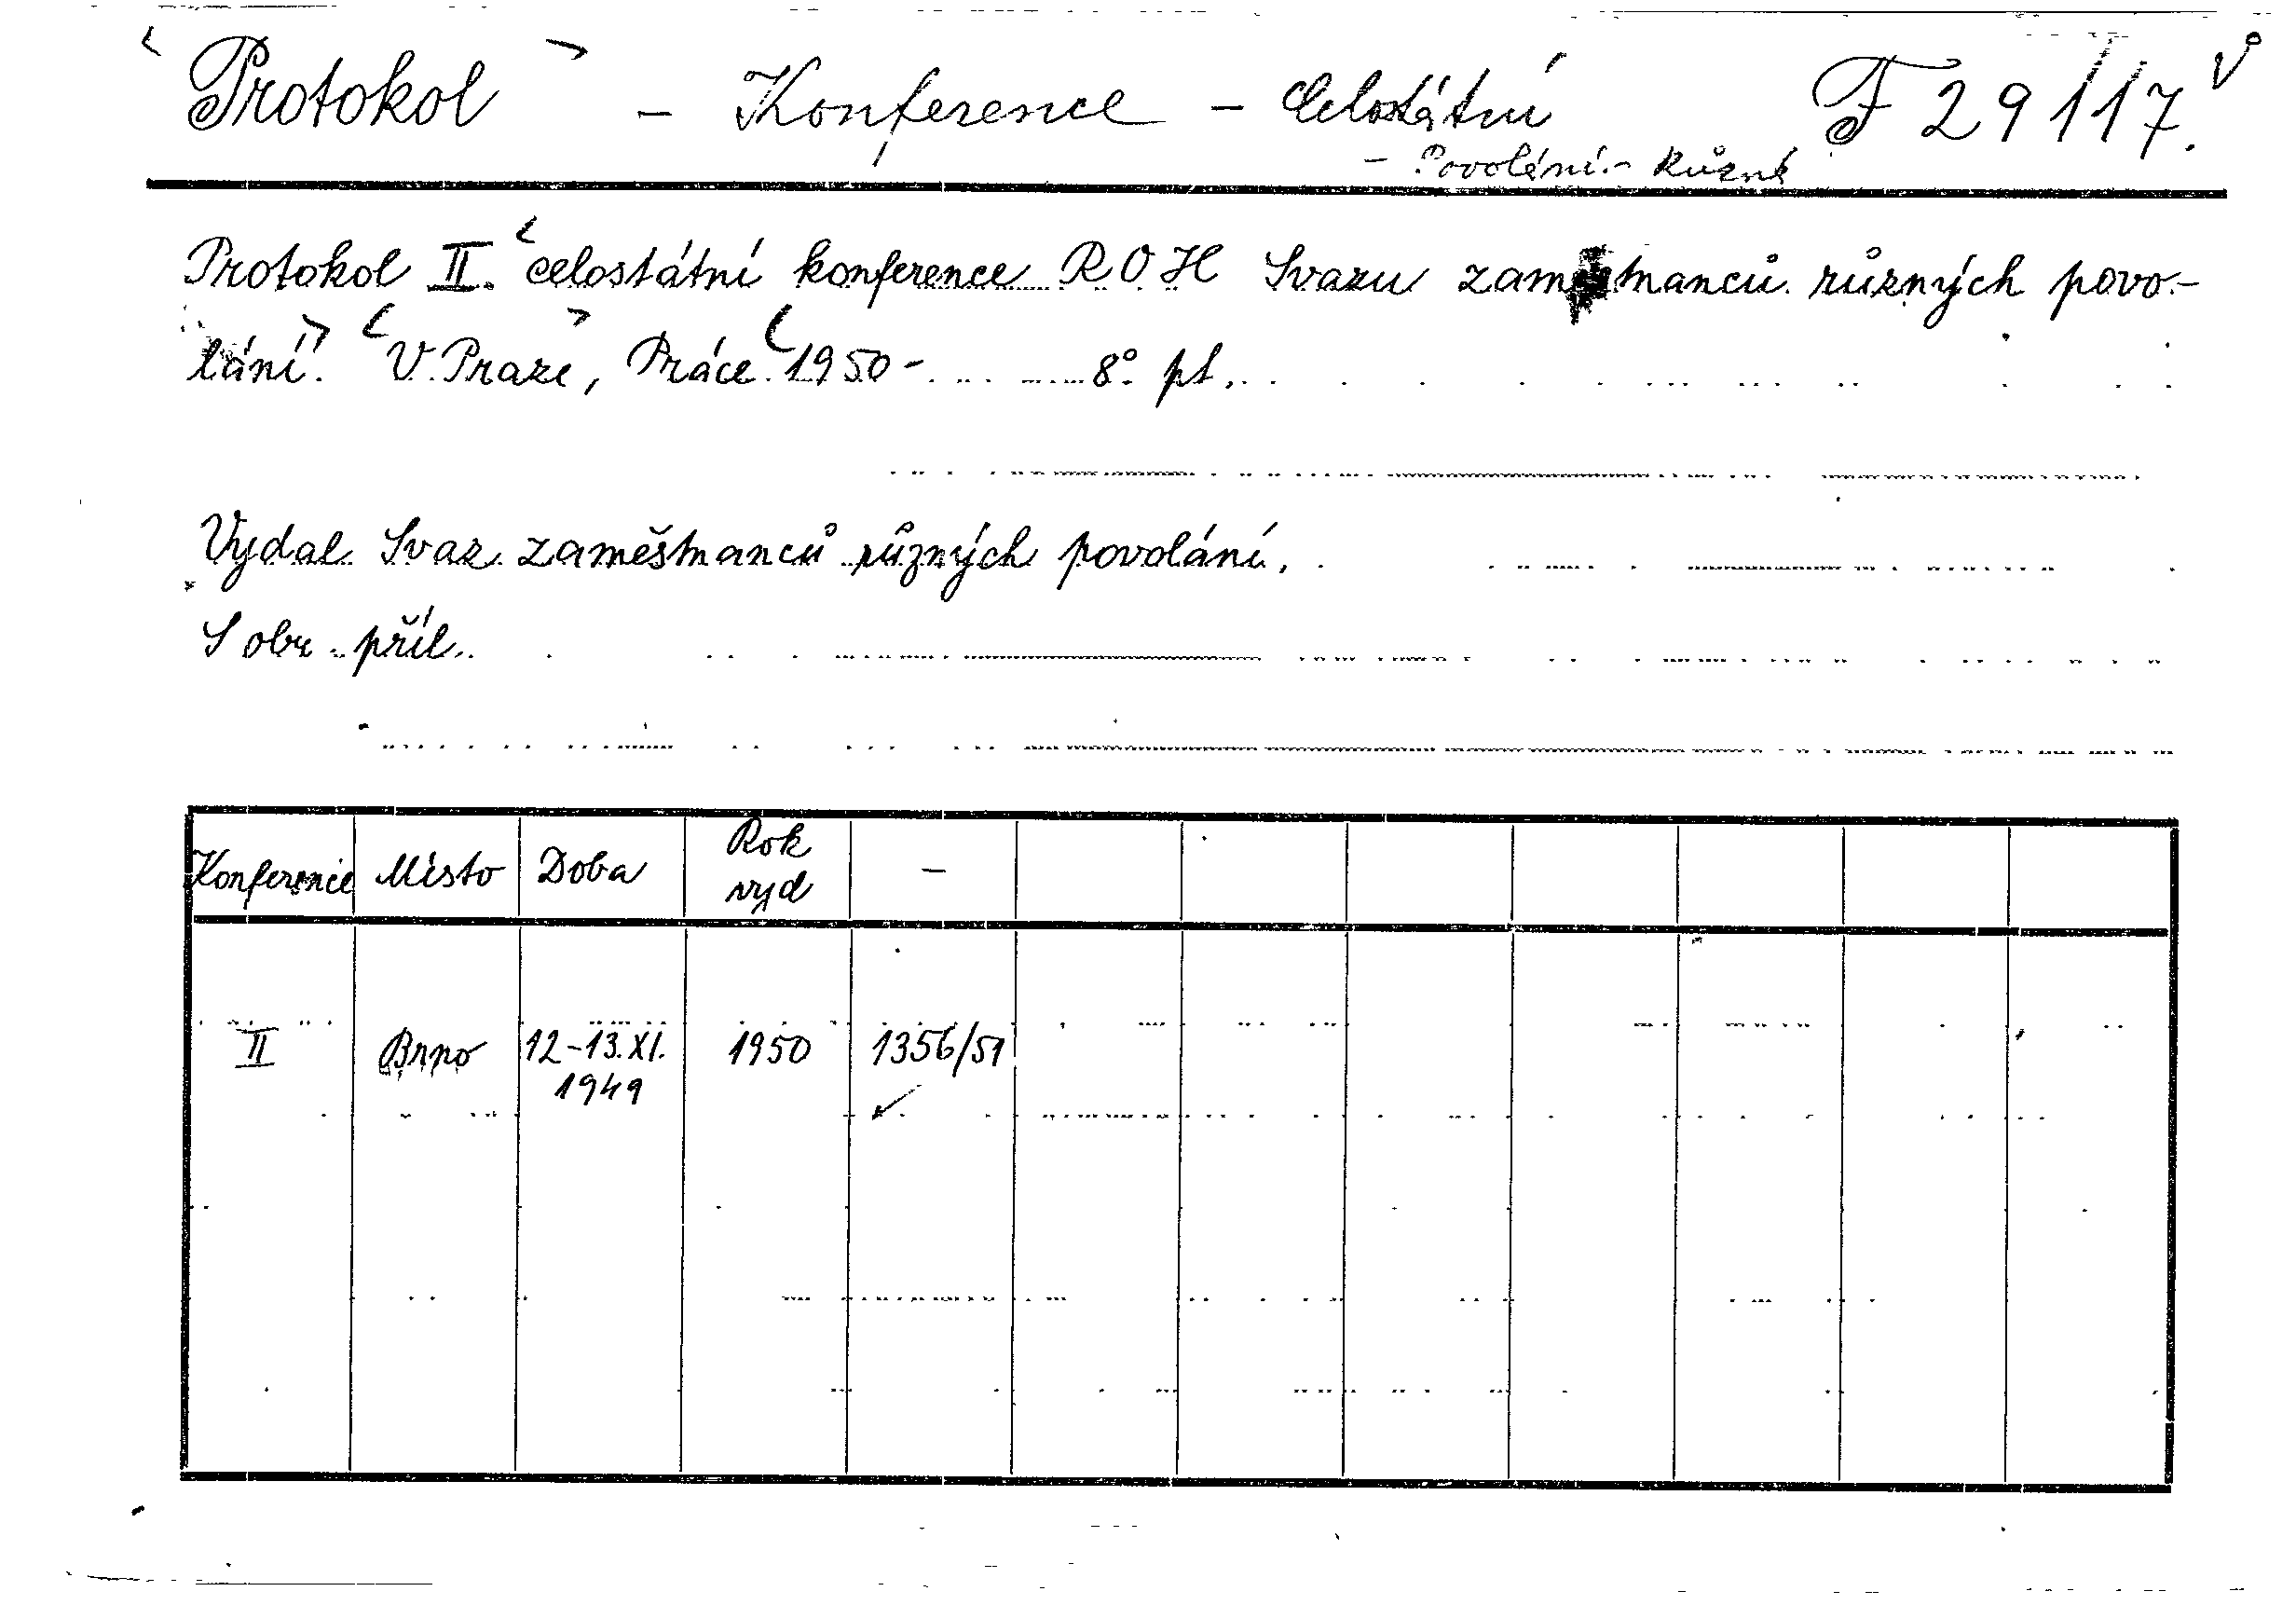 Protokol - Konference - Celostátní F 29117.
- Povolání - Různá
Protokol II. celostátní konference ROH Svazu zaměstnanců různých povo-
lání. V Praze, Práce 1950- 8° pl.
Vydal Svaz zaměstnanců různých povolání.
S obr. příl.
Konference Místo Doba Rok vyd -
II Brno 12-13.XI. 1949 1950 1356/51